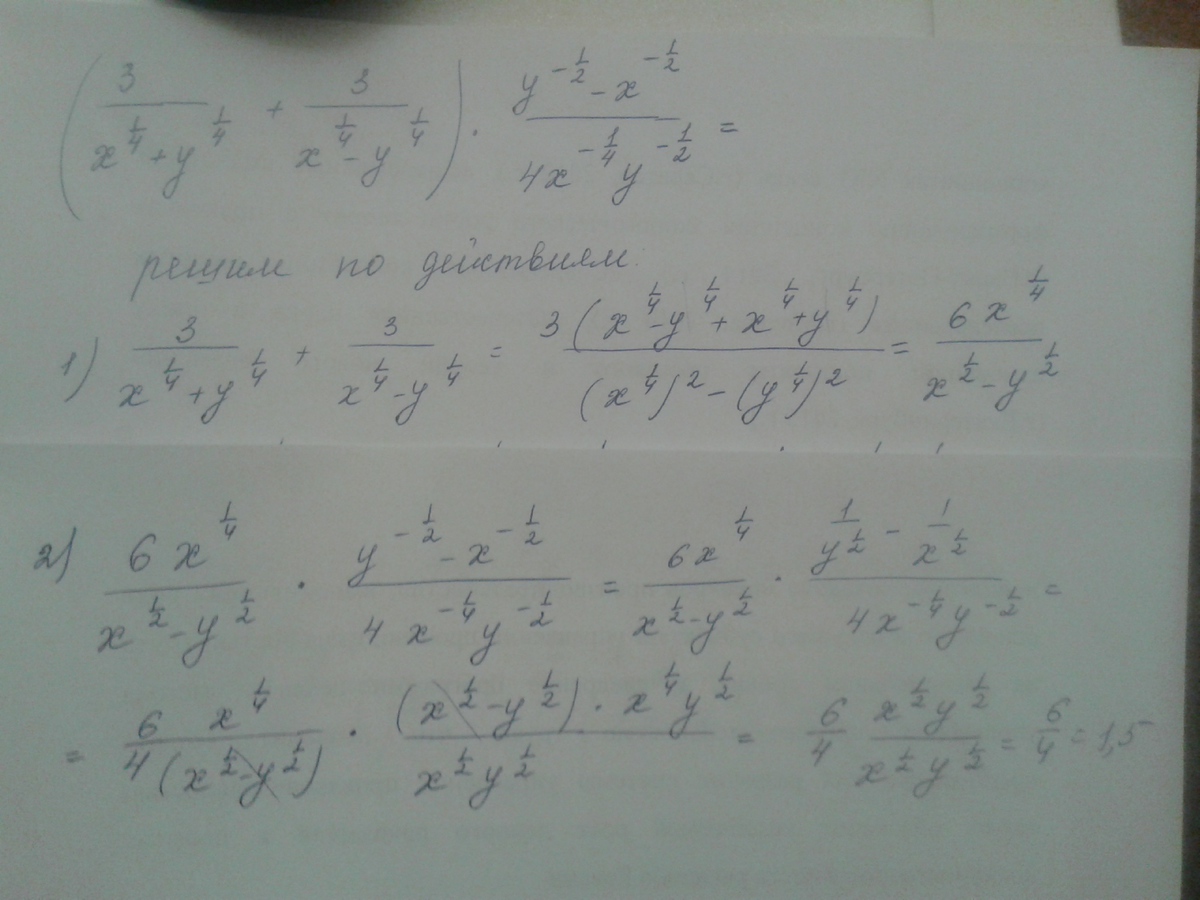 (3/(x^(1/4)+y^(1/4)) + 3/(x^(1/4)-y^(1/4))) · (y^(-1/2)-x^(-1/2))/(4x^(-1/4)y^(-1/2)) =
решим по действиям.
1) 3/(x^(1/4)+y^(1/4)) + 3/(x^(1/4)-y^(1/4)) = 3(x^(1/4)-y^(1/4)+x^(1/4)+y^(1/4))/((x^(1/4))^2-(y^(1/4))^2) = 6x^(1/4)/(x^(1/2)-y^(1/2))
2) 6x^(1/4)/(x^(1/2)-y^(1/2)) · (y^(-1/2)-x^(-1/2))/(4x^(-1/4)y^(-1/2)) = 6x^(1/4)/(x^(1/2)-y^(1/2)) · (1/y^(1/2)-1/x^(1/2))/(4x^(-1/4)y^(-1/2)) =
= 6x^(1/4)/(4(x^(1/2)-y^(1/2))) · (x^(1/2)-y^(1/2))·x^(1/4)y^(1/2)/(x^(1/2)y^(1/2)) = 6/4 x^(1/2)y^(1/2)/(x^(1/2)y^(1/2)) = 6/4 = 1,5